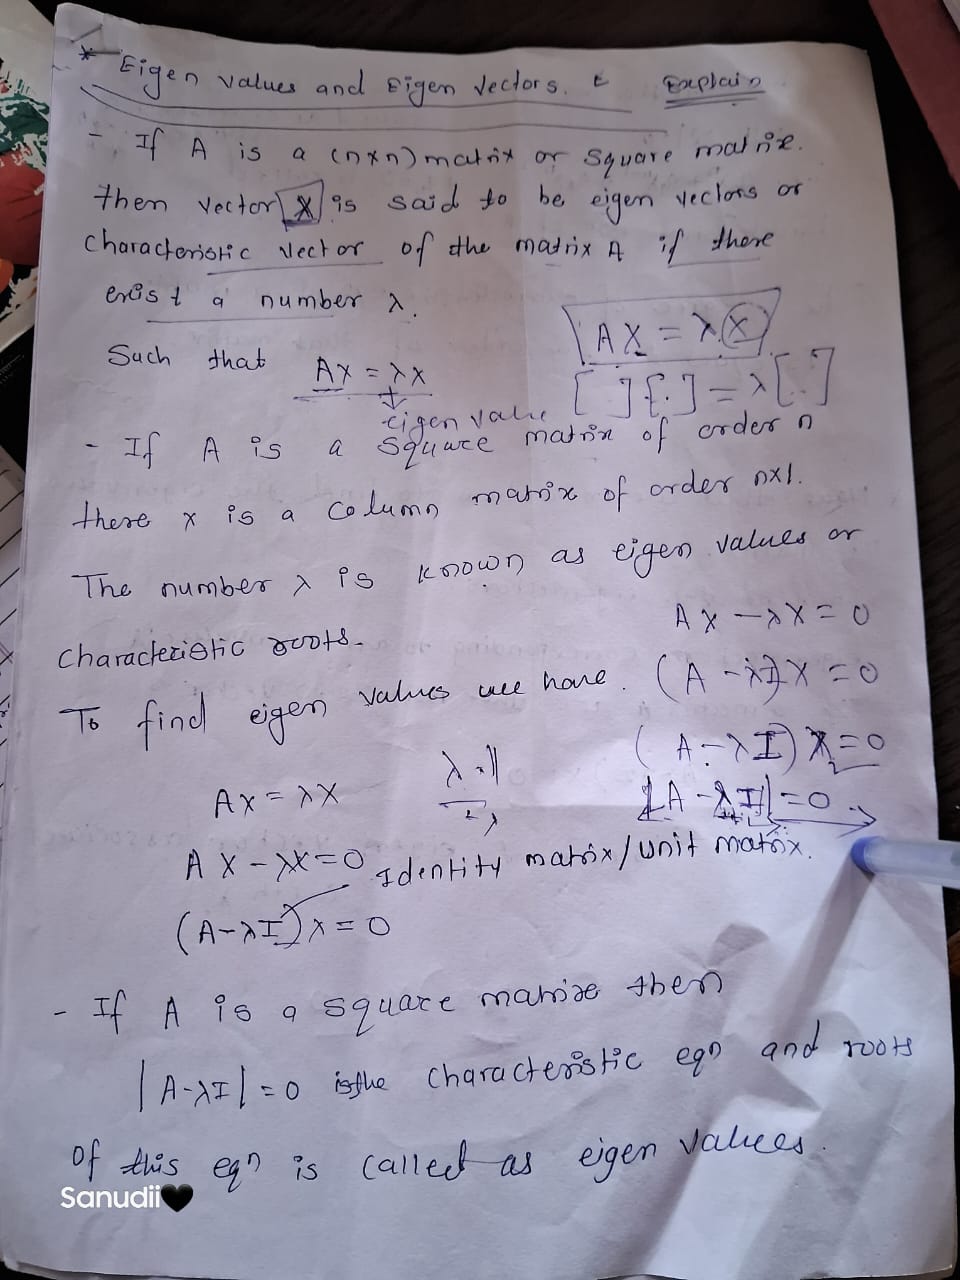 * Eigen values and Eigen vectors. & Explain
- If A is a (n×n) matrix or square matrix.
then vector X is said to be eigen vectors or
characteristic vector of the matrix A if there
exist a number λ.
Such that AX = λX
eigen value
AX = λX
[ ] [.] = λ [.]
- If A is a square matrix of order n
there x is a column matrix of order n×1.
The number λ is known as eigen values or
characteristic roots.
To find eigen values we have.
AX = λX
AX - λX = 0
(A-λI)X = 0
Identity matrix/unit matrix.
AX - λX = 0
(A - λI)X = 0
(A - λI)X = 0
|A - λI| = 0
- If A is a square matrix then
|A-λI| = 0 is the characteristic eqn and roots
of this eqn is called as eigen values.
Sanudii🖤